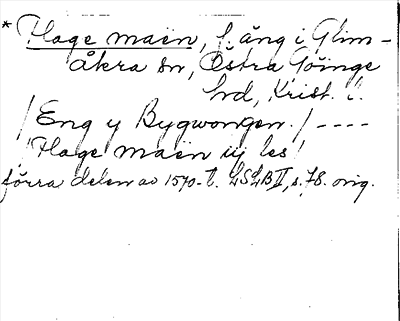 * Hage maen, f. äng i Glim-
åkra sn, Östra Göinge
hd, Krist. l.
/ Eng y Bygwongen. / ----
/ Hage maen iij les /
förra delen av 1570-t. LSLB II, s. 78. orig.